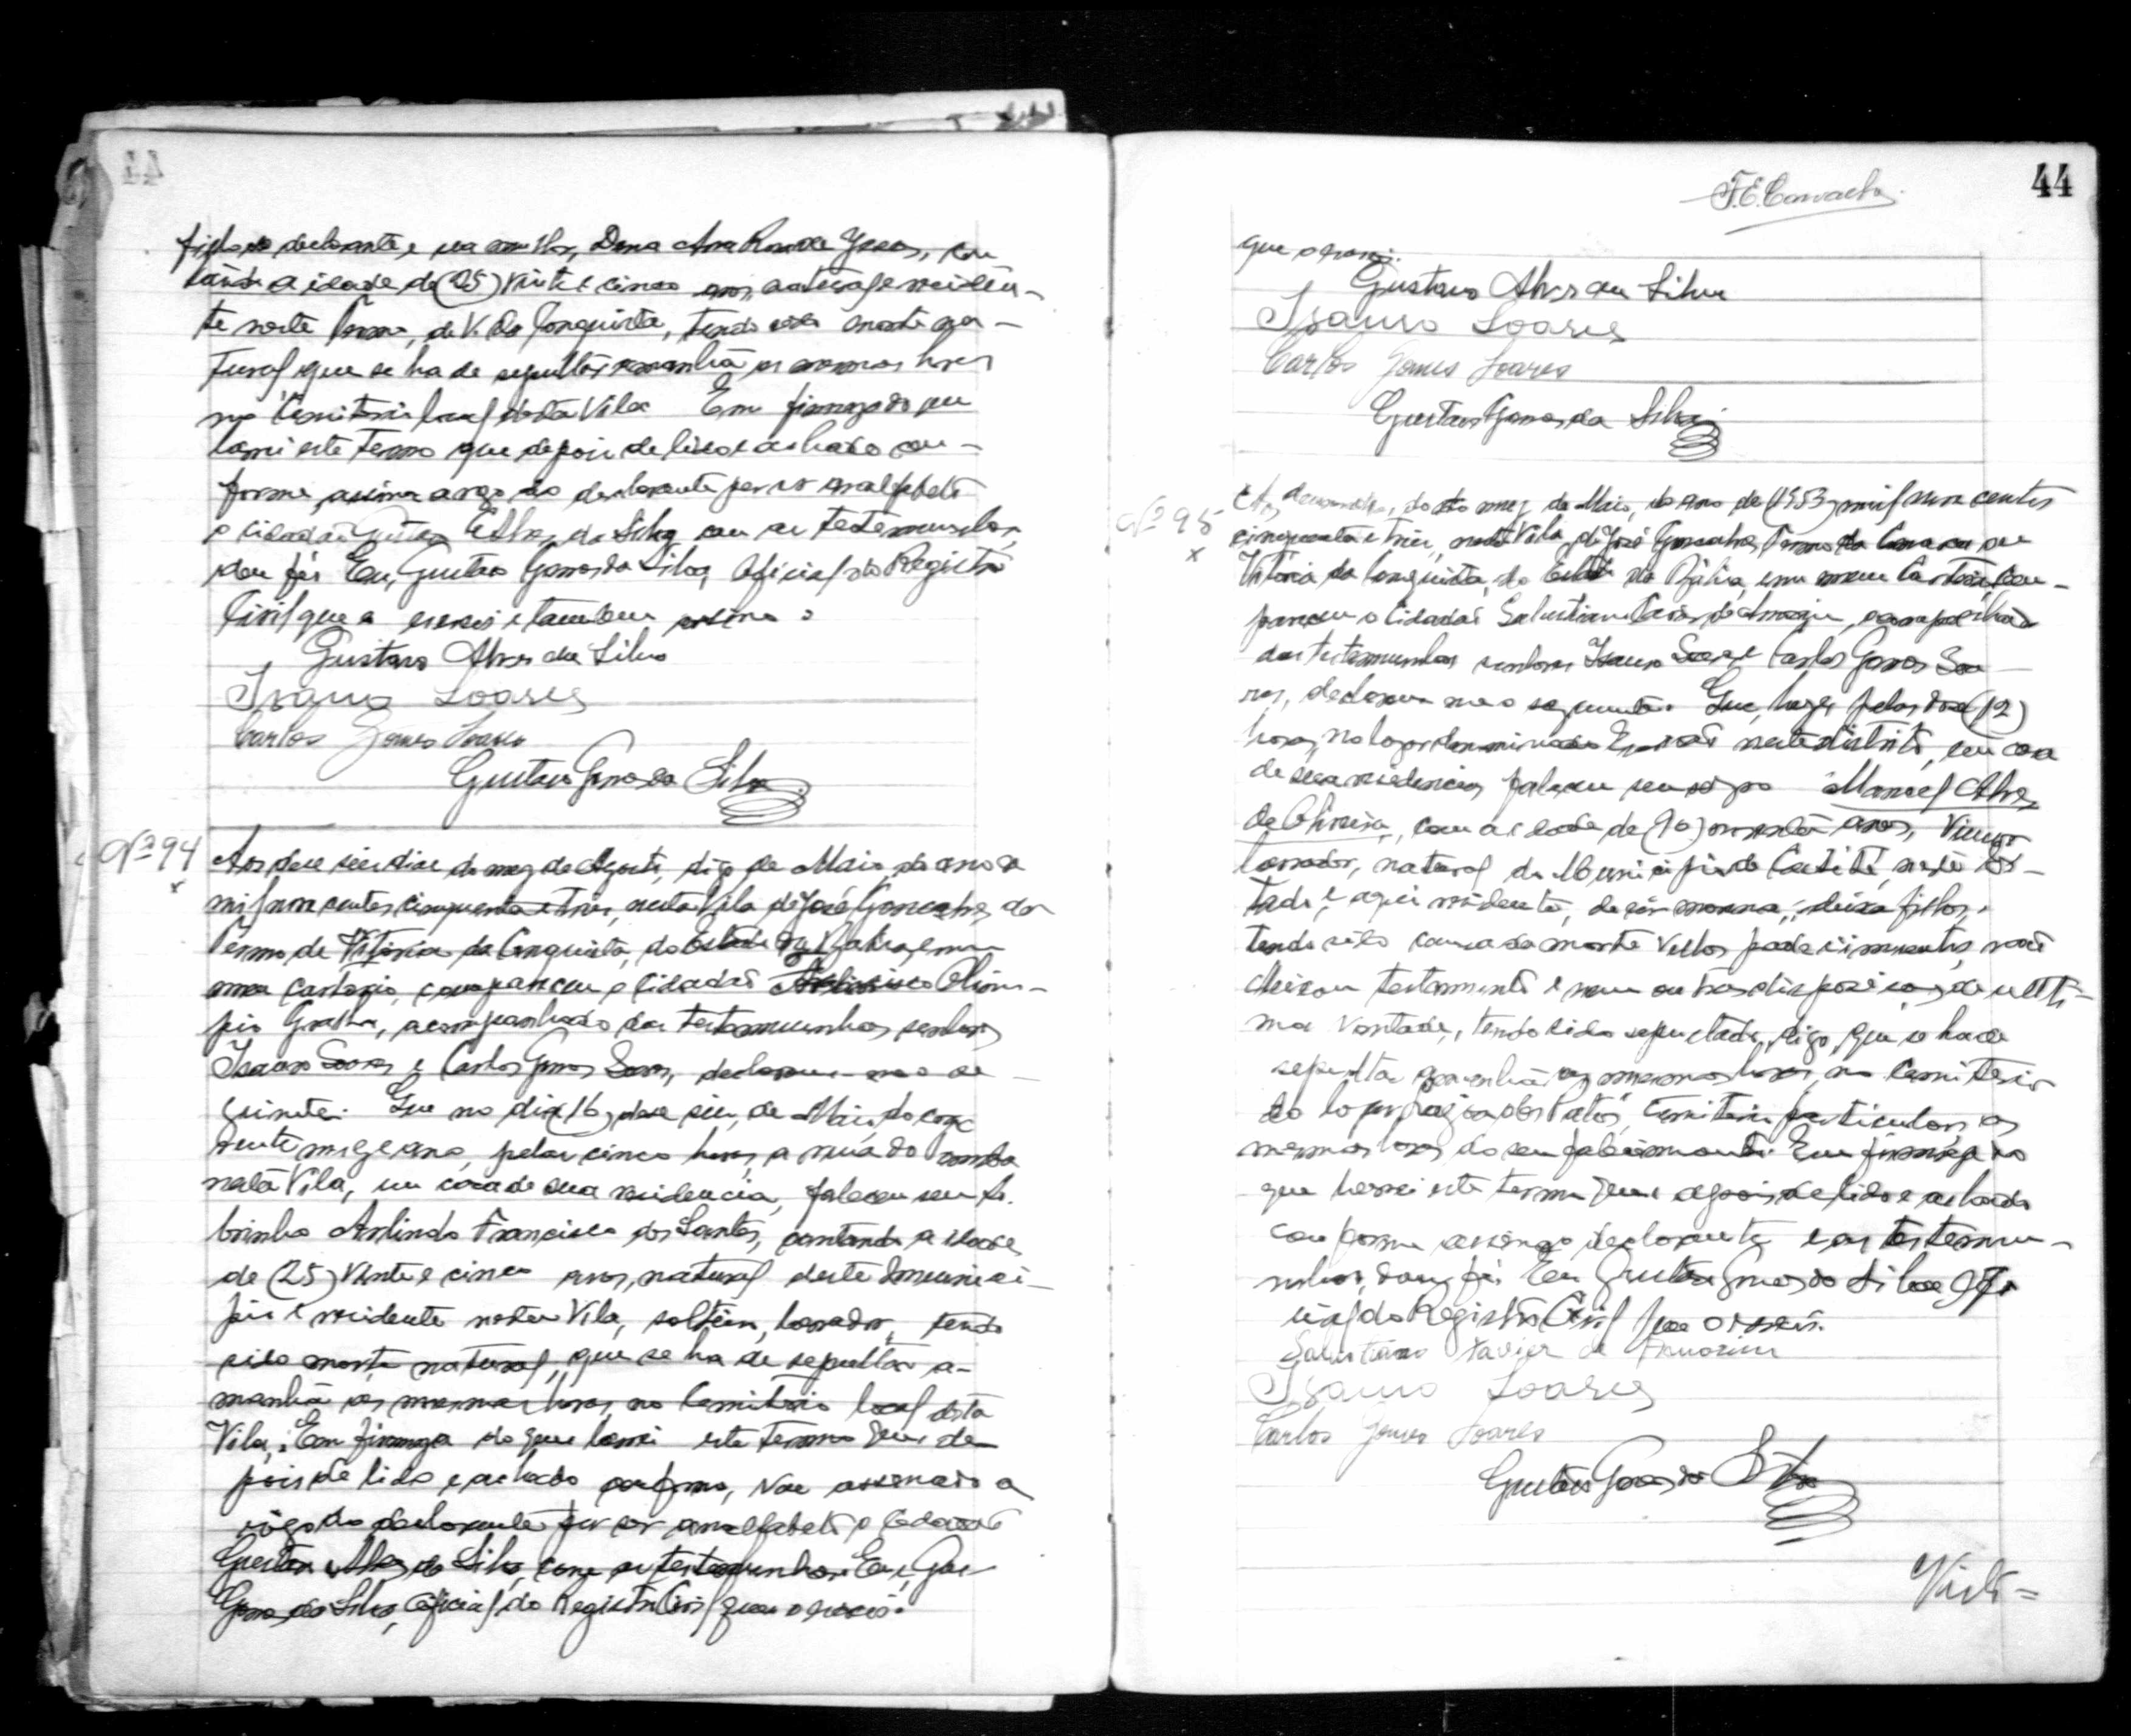 filho do declarante e sua mulher, Dona Ana Rosa de Jesus, con
tando a idade de (25) vinte e cinco anos, natural e residen-
te neste Termo, de V. da Conquista, tendo sido morte na-
tural que se ha de sepultar amanhã as mesmas horas
no Cemiterio local desta Vila Em firmeza do que
lavrei este Termo que depois de lido e achado con-
forme, assina a rogo do declarante por ser analfabeto
o cidadão Gustavo Alves da Silva com as testemunhas,
dou fé. Eu, Gustavo Gomes da Silva, Oficial do Registro
Civil que o escrevi e tambem assino.
Gustavo Alves da Silva
Isauro Soares
Carlos Gomes Soares
Gustavo Gomes da Silva
Nº 94
x
Aos dese seis dias do mez de Agosto, digo de Maio, do ano de
mil nove centos cinquenta e tres, nesta Vila de José Gonçalves, do
Termo de Vitória da Conquista, do Estado da Bahia, em
meu cartorio, compareceu o cidadão Olim-
pio, acompanhado das testemunhas senhores
Isauro Soares e Carlos Gomes Soares, declarou-me o se-
guinte: Que no dia (16) dese seis, de Maio, do cor
rente mez e ano, pelas cinco horas, a rua do
nesta Vila, em casa de sua residencia, faleceu seu so.
brinho Arlindo Francisco dos Santos, contando a idade
de (25) vinte e cinco anos, natural deste Munici-
pio e residente nesta Vila, solteiro, lavrador, tendo
sido morte natural, que se ha de sepultar a-
manhã as mesmas horas, no Cemiterio local desta
Vila. Em firmeza do que lavrei este termo que de-
pois de lido e achado conforme, vae assinado a
rôgo do declarante por ser analfabeto o cidadão
Gustavo Alves da Silva, com as testemunhas. Eu, Gus
Gomes da Silva, Oficial do Registro Civil que o escrevi.
44
F. E. Carvalho
que o escrevi.
Gustavo Alves da Silva
Isauro Soares
Carlos Gomes Soares
Gustavo Gomes da Silva
Nº 95
x
Aos, do mez de Maio, do ano de (1953) mil nove centos
cinquenta e três, nesta Vila, de José Gonçalves, Termo da Comarca de
Vitória da Conquista, do Estado da Bahia, em meu Cartorio, com-
pareceu o cidadão Salustiano Xavier de Amorim, acompanhado
das testemunhas senhores Isauro Soares e Carlos Gomes Soa-
res, declarou-me o seguinte: Que, hoje, pelas doze (12)
horas, no lugar denominado neste distrito, em casa
de sua residencia, faleceu seu sogro Manoel Alves
de Oliveira, com a idade de (90) noventa anos, Viuvo
lavrador, natural do Municipio de Caetité, neste Es-
tado, e aqui residente, de côr morena, deixa filhos,
tendo sido causa da morte velhos padecimentos, não
deixou testamento e nem outras disposições de ulti-
ma vontade, tendo sido sepultado, digo, que se ha de
sepultar amanhã as mesmas horas, no Cemiterio
do lugar Lagôa dos Patos, Cemiterio particular, as
mesmas horas do seu falecimento. Em firmeza do
que lavrei este termo que depois de lido e achado
conforme assina o declarante e as testemu-
nhas, dou fé. Eu Gustavo Gomes da Silva Ofi
cial do Registro Civil que o escrevi.
Salustiano Xavier de Amorim
Isauro Soares
Carlos Gomes Soares
Gustavo Gomes da Silva
Visto=